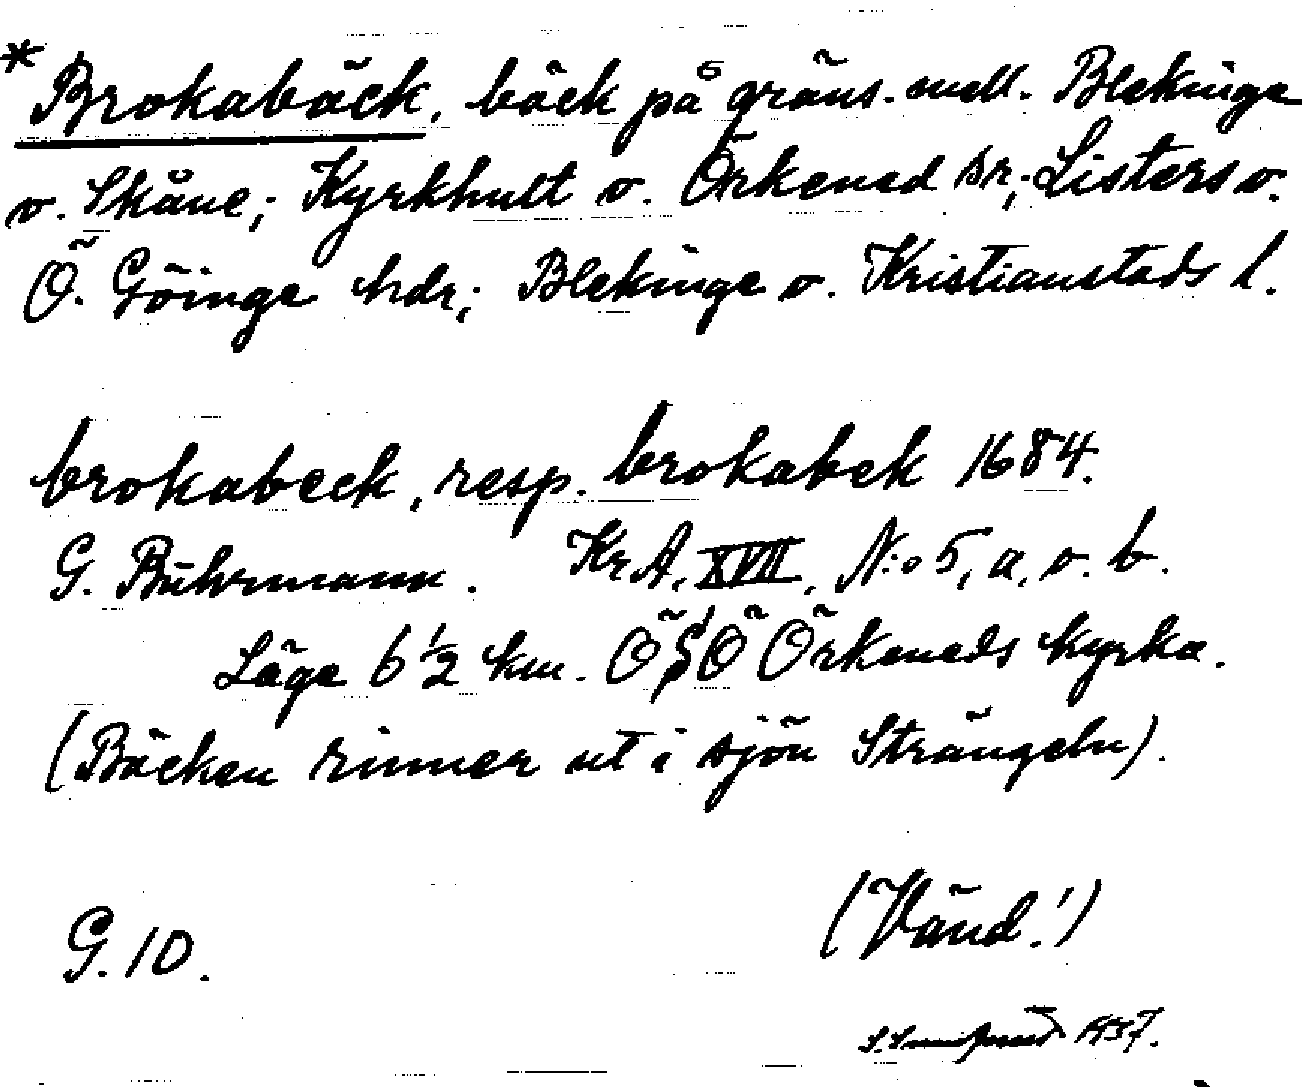 *Brokabäck, bäck på gräns. mell. Blekinge
o. Skåne; Kyrkhult o. Örkened sr; Listers o.
Ö. Göinge hdr; Blekinge o. Kristianstads l.
brokabeck, resp. brokabek 1684.
G. Buhrmann. Kr.A. XVII, N:o 5, a, o. b.
Läge 6 1/2 km. ÖSÖ Örkeneds kyrka.
(Bäcken rinner ut i sjön Strängeln).
(Vänd!)
G. 10.
1937.